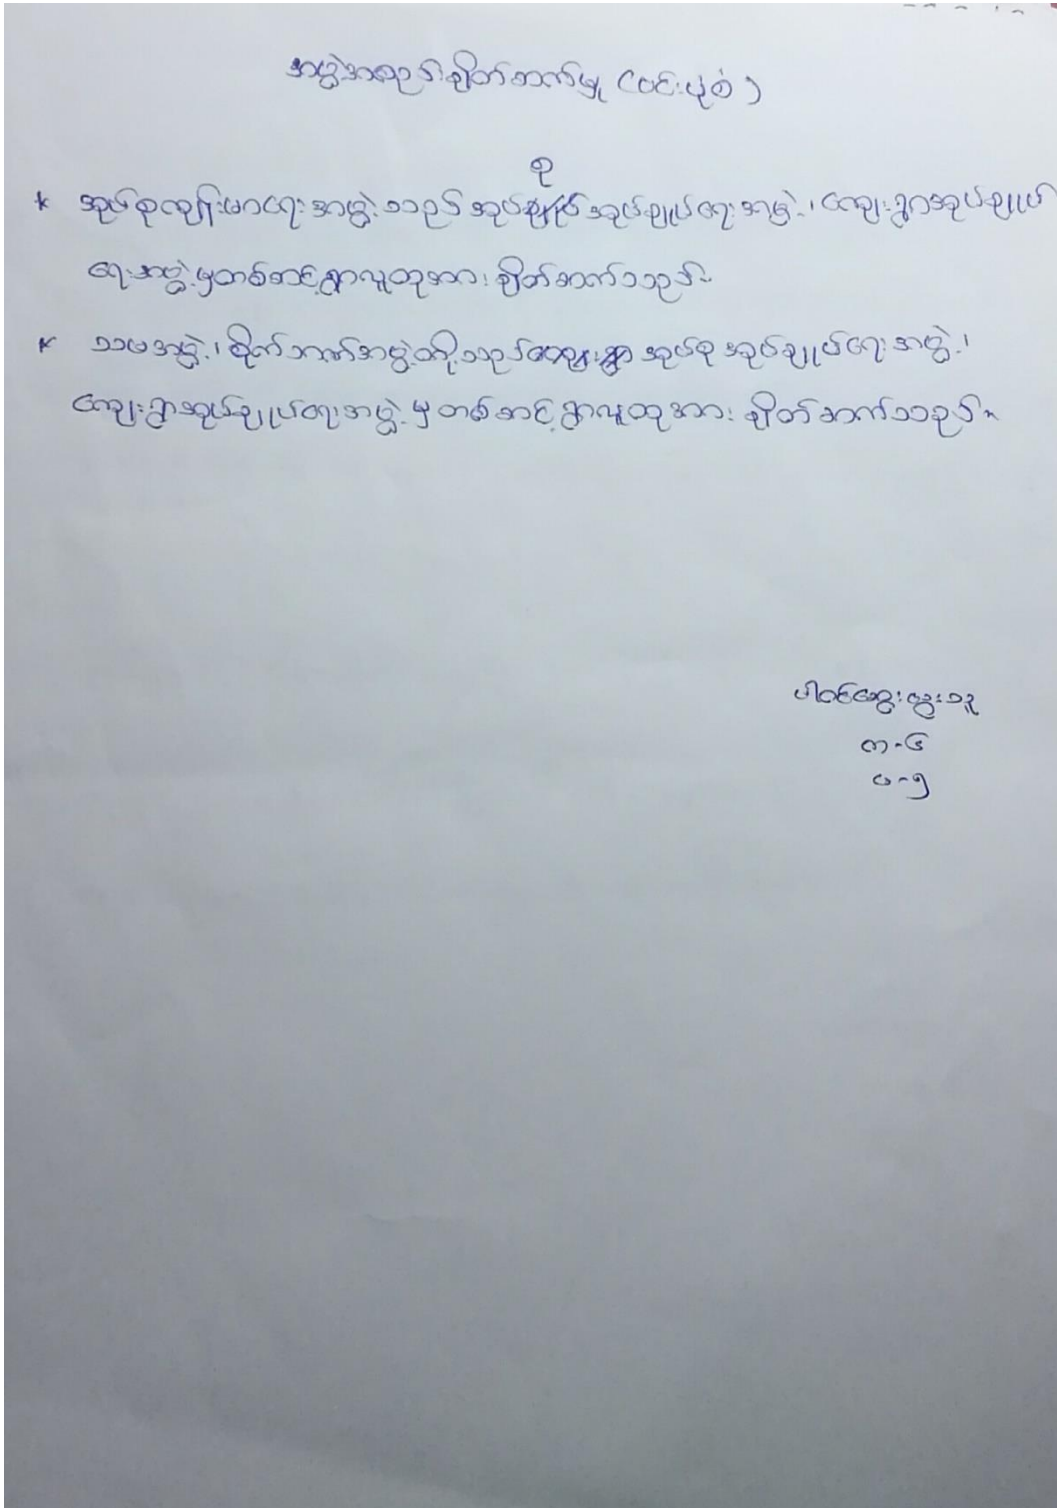 အဖွဲ့အစည်းချိတ်ဆက်မှု (ဝင်းပုံစံ)
* အုပ်စုကျန်းမာရေးအဖွဲ့သည် အုပ်စုအုပ်ချုပ်ရေးအဖွဲ့၊ ကျေးရွာအုပ်ချုပ်
ရေးအဖွဲ့မှတစ်ဆင့်ရွာလူထုအား ချိတ်ဆက်သည်။
* သမအဖွဲ့၊ စိုက်ဘဏ်အဖွဲ့တို့သည် အုပ်စု အုပ်ချုပ်ရေးအဖွဲ့၊
ကျေးရွာအုပ်ချုပ်ရေးအဖွဲ့မှ တစ်ဆင့်ရွာလူထုအား ချိတ်ဆက်သည်။
ပါဝင်ဆွေးနွေးသူ
က-၆
မ-၅